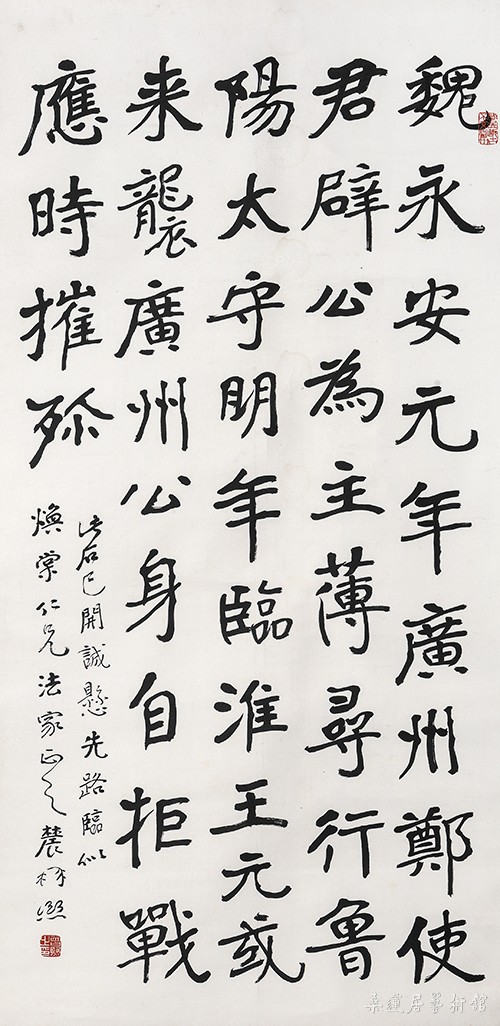 魏永安元年廣州鄭使
君辟公為主薄尋行魯
陽太守明年臨淮王元彧
来襲廣州公身自拒戰
應時摧殄
此石已開誠懸先路臨似
煥棠仁兄法家正之 農柯
桑蓮居藝術館